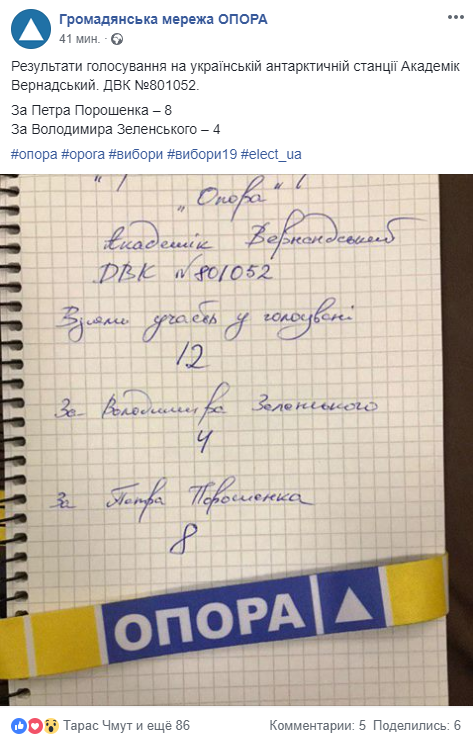 Громадянська мережа ОПОРА
41 мин. ·
Результати голосування на українській антарктичній станції Академік
Вернадський. ДВК №801052.
За Петра Порошенка – 8
За Володимира Зеленського – 4
#опора #opora #вибори #вибори19 #elect_ua
"Опора"
Академік Вернандський
ДВК №801052
Взяли участь у голосувані
12
За Володимира Зеленського
4
За Петра Порошенка
8
ОПОРА
Тарас Чмут и ещё 86
Комментарии: 5 Поделились: 6